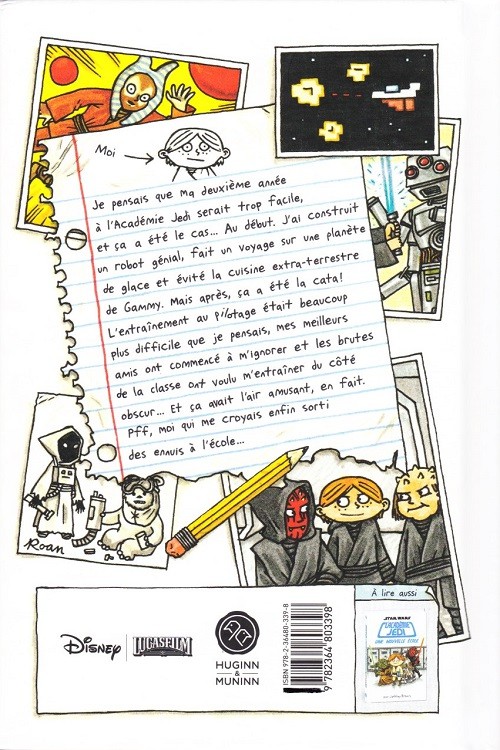 Moi
Je pensais que ma deuxième année
à l'Académie Jedi serait trop facile,
et ça a été le cas... Au début. J'ai construit
un robot génial, fait un voyage sur une planète
de glace et évité la cuisine extra-terrestre
de Gammy. Mais après, ça a été la cata!
L'entraînement au pilotage était beaucoup
plus difficile que je pensais, mes meilleurs
amis ont commencé à m'ignorer et les brutes
de la classe ont voulu m'entraîner du côté
obscur... Et ça avait l'air amusant, en fait.
Pff, moi qui me croyais enfin sorti
des ennuis à l'école...
Roan
DISNEY
LUCASFILM
HUGINN
&
MUNINN
ISBN 978-2-36480-339-8
9 782364 803398
À lire aussi
STAR WARS
L'ACADÉMIE
JEDI
UNE NOUVELLE ÉCOLE